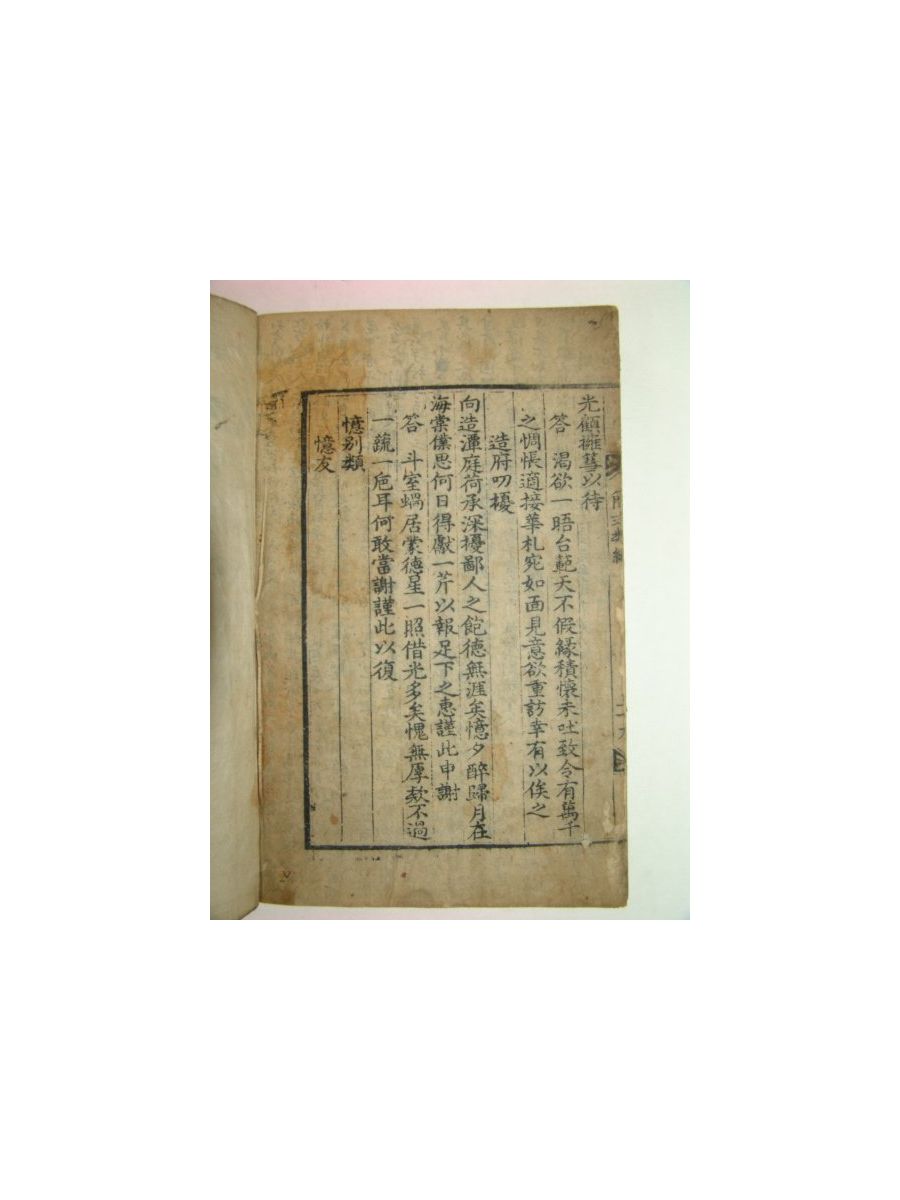 光顧擁篲以待
答 渴欲一晤台範天不假緣積懷未吐致令有萬千
之惆悵適接華札宛如面見意欲重訪幸有以俟之
造府叨擾
向造潭庭荷承深擾鄙人之飽德無涯矣憶夕醉歸月在
海棠僕思何日得獻一芹以報足下之惠謹此申謝
答 斗室蝸居蒙德星一照借光多矣愧無厚款不過
一蔬一卮耳何敢當謝謹此以復
憶別類
憶友